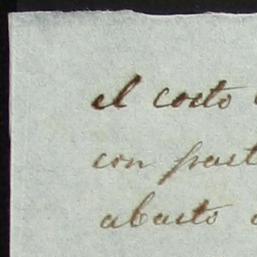 el costo
con
abasto